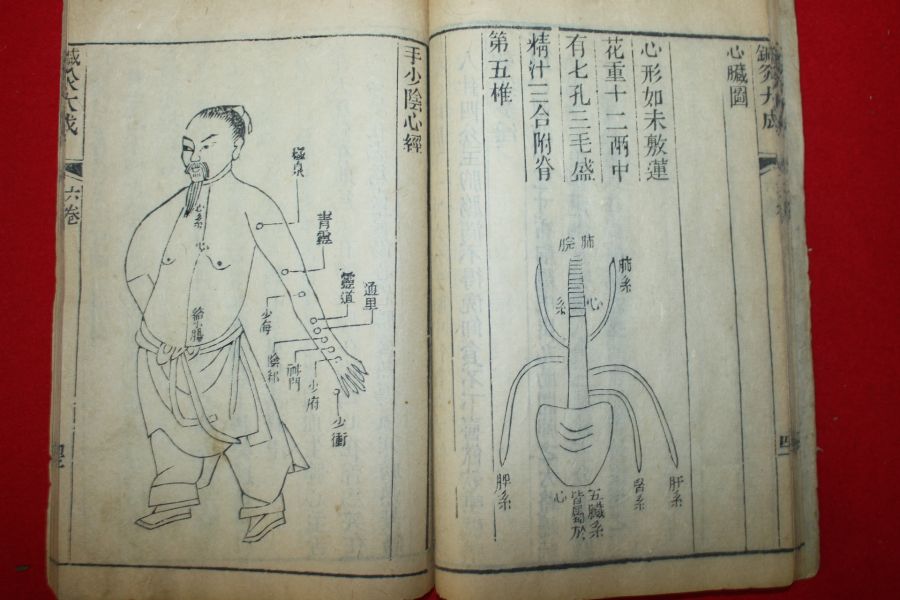 鍼灸大成
心臟圖
心形如未敷蓮
花重十二兩中
有七孔三毛盛
精汁三合附脊
第五椎
肺
肺系
心
系
脾系
腎系
肝系
五臟系
皆屬於
心
手少陰心經
極泉
青靈
靈道
通里
少海
陰郄
神門
少府
少衝
心系
心
絡小腸
鍼灸大成
六卷